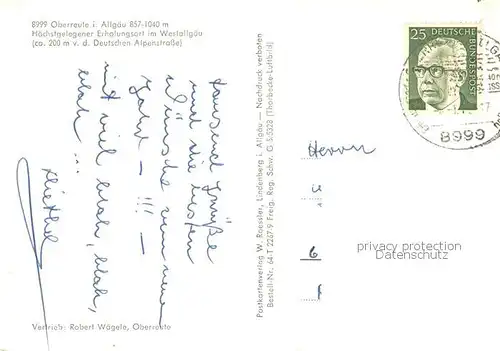 8999 Oberreute i. Allgäu 857-1040 m
Höchstgelegener Erholungsort im Westallgäu
(ca. 200 m v. d. Deutschen Alpenstraße)
tausend Grüße
und die besten
Wünsche zum neuen
Jahr - !!! -
mit viel blah, blah,
blah ...
Vertrieb: Robert Wägele, Oberreute
Postkartenverlag W. Roessler, Lindenberg i. Allgäu — Nachdruck verboten
Bestell-Nr. 64-T 2267/9 Freig. Reg. Schw. G 5/5328 (Thorbecke-Luftbild)
25 DEUTSCHE
BUNDESPOST
8999
Herrn
6
privacy protection
Datenschutz